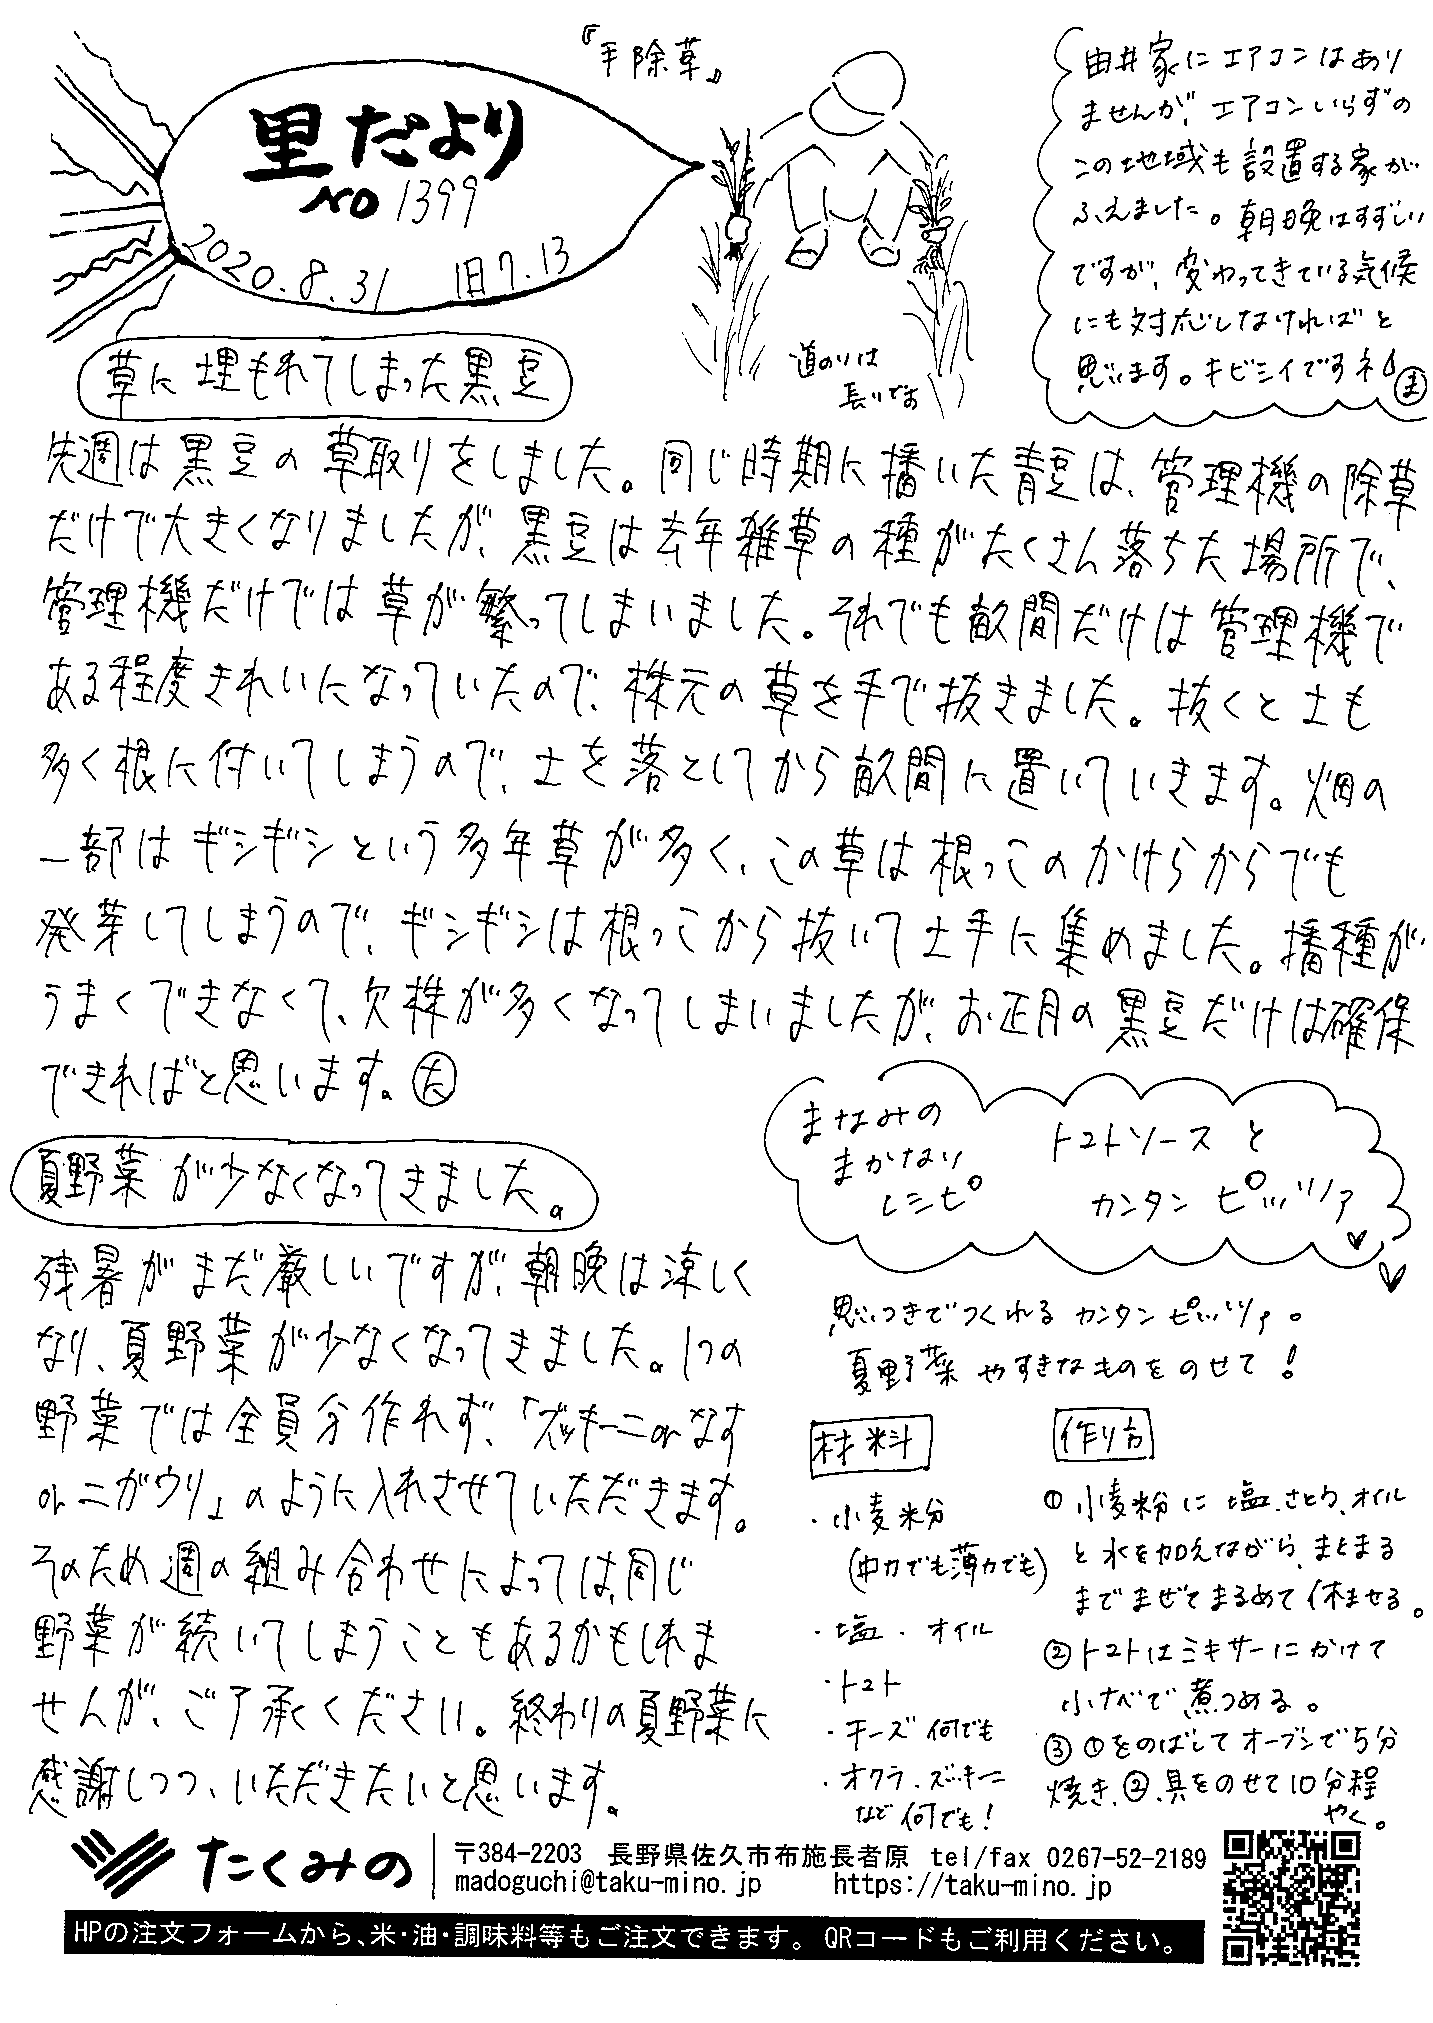 里だより
NO 1399
2020.8.31 旧7.13
『手除草』
道のりは
長いです
由井家にエアコンはあり
ませんが、エアコンいらずの
この地域も設置する家が
ふえました。朝晩はすずしい
ですが、変わってきている気候
にも対応しなければと
思います。キビシイですネ ま
草に埋もれてしまった黒豆
先週は黒豆の草取りをしました。同じ時期に播いた青豆は、管理機の除草
だけで大きくなりましたが、黒豆は去年雑草の種がたくさん落ちた場所で、
管理機だけでは草が繁ってしまいました。それでも畝間だけは管理機で
ある程度きれいになっていたので、株元の草を手で抜きました。抜くと土も
多く根に付いてしまうので、土を落としてから畝間に置いていきます。畑の
一部はギシギシという多年草が多く、この草は根っこのかけらからでも
発芽してしまうので、ギシギシは根っこから抜いて土手に集めました。播種が
うまくできなくて、欠株が多くなってしまいましたが、お正月の黒豆だけは確保
できればと思います。た
夏野菜が少なくなってきました。
残暑がまだ厳しいですが、朝晩は涼しく
なり、夏野菜が少なくなってきました。1つの
野菜では全員分作れず、「ズッキーニorなす
orニガウリ」のように入れさせていただきます。
そのため週の組み合わせによっては、同じ
野菜が続いてしまうこともあるかもしれま
せんが、ご了承ください。終わりの夏野菜に
感謝しつつ、いただきたいと思います。
まなみの
まかない
レシピ
トマトソースと
カンタンピッツァ
思いつきでつくれるカンタンピッツァ。
夏野菜やすきなものをのせて!
材料
・小麦粉
(中力でも薄力でも)
・塩・オイル
・トマト
・チーズ何でも
・オクラ・ズッキーニ
など何でも!
作り方
①小麦粉に塩、さとう、オイル
と水を加えながら、まとまる
までまぜてまるめて休ませる。
②トマトはミキサーにかけて
小ナベで煮つめる。
③①をのばしてオーブンで5分
焼き、②、具をのせて10分程
やく。
たくみの
〒384-2203 長野県佐久市布施長者原 tel/fax 0267-52-2189
madoguchi@taku-mino.jp https://taku-mino.jp
HPの注文フォームから、米・油・調味料等もご注文できます。QRコードもご利用ください。